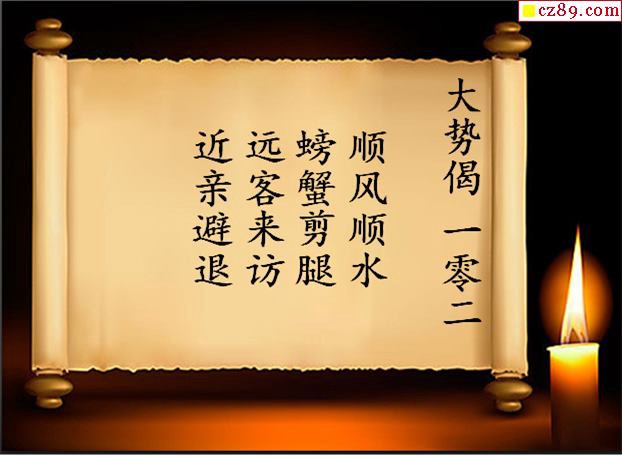 cz89.com
大势偈 一零二
顺风顺水
螃蟹剪腿
远客来访
近亲避退